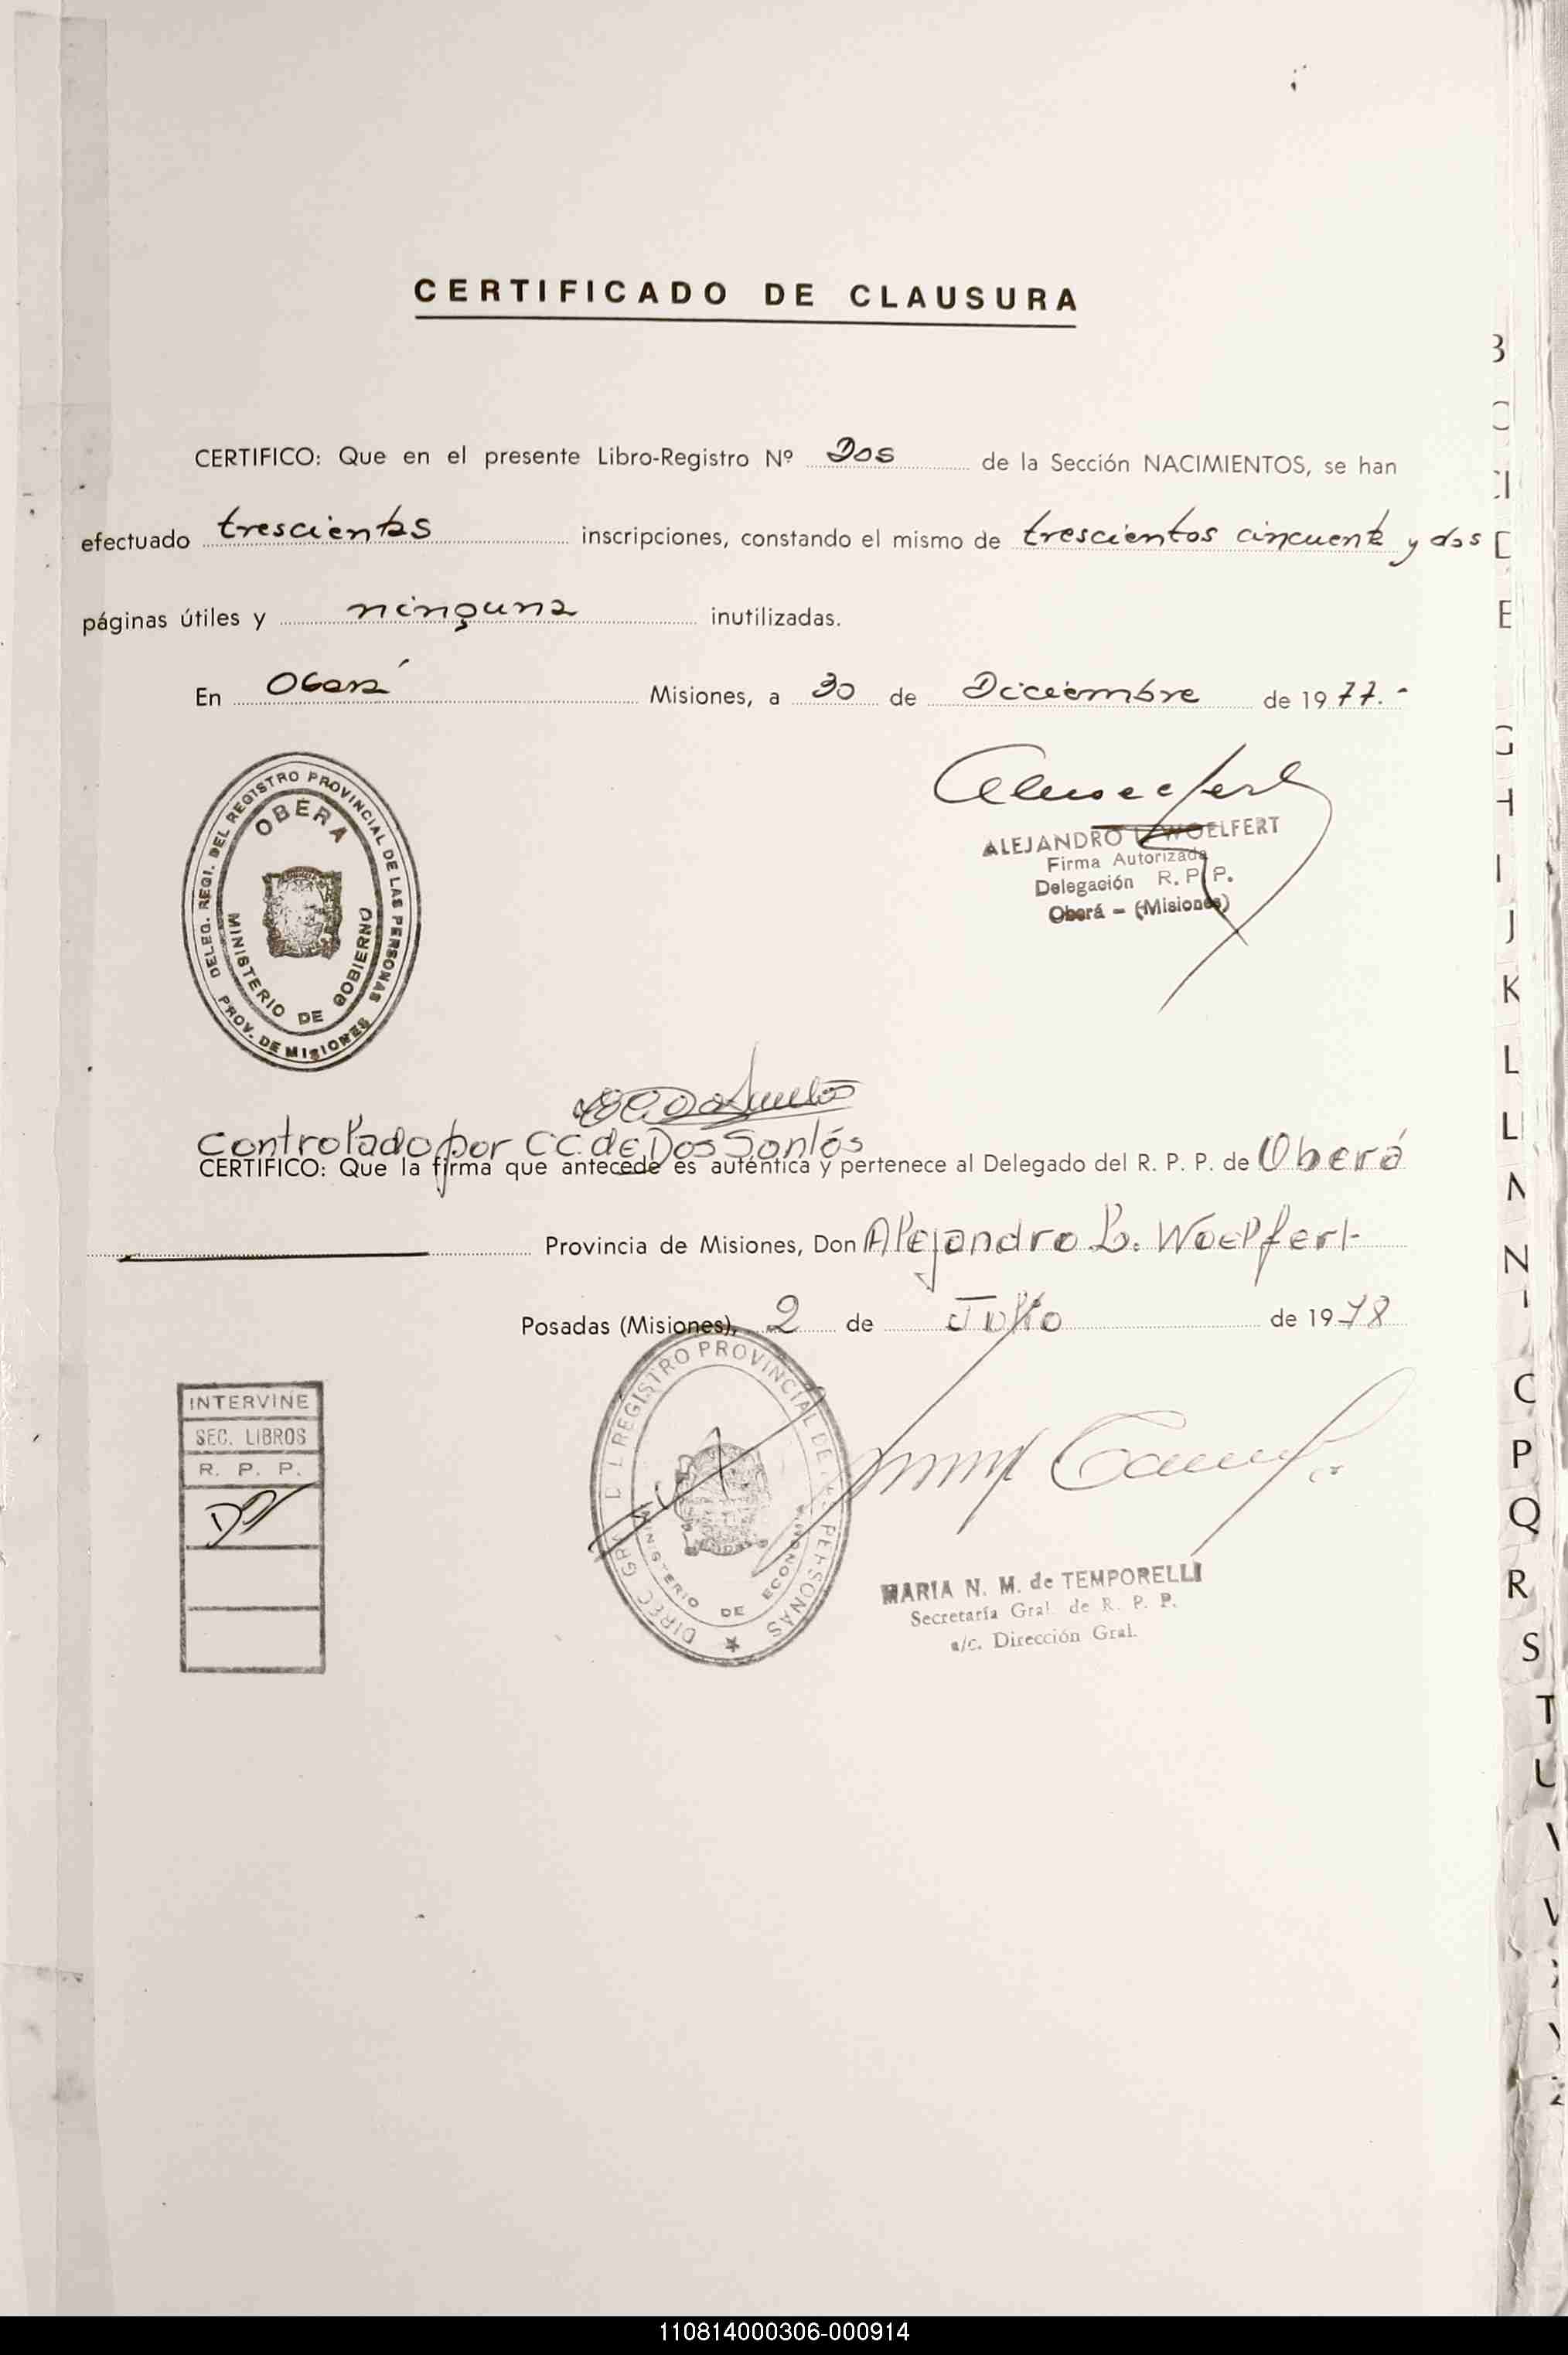 CERTIFICADO DE CLAUSURA
CERTIFICO: Que en el presente Libro-Registro Nº Dos de la Sección NACIMIENTOS, se han
efectuado trescientas inscripciones, constando el mismo de trescientos cincuenta y dos
páginas útiles y ninguna inutilizadas.
En Oberá Misiones, a 30 de Diciembre de 1977.-
DELEG. REGI. DEL REGISTRO PROVINCIAL DE LAS PERSONAS
OBERA
MINISTERIO DE GOBIERNO
PROV. DE MISIONES
ALEJANDRO L. WOELFERT
Firma Autorizada
Delegación R. P. P.
Oberá - (Misiones)
Controlado por CC. de Dos Santos
CERTIFICO: Que la firma que antecede es auténtica y pertenece al Delegado del R. P. P. de Oberá
Provincia de Misiones, Don Alejandro L. Woelfert
Posadas (Misiones), 2 de Julio de 1978
INTERVINE
SEC. LIBROS
R. P. P.
REGISTRO PROVINCIAL DE PERSONAS
MINISTERIO DE ECONOMIA
MARIA N. M. de TEMPORELLI
Secretaría Gral. de R. P. P.
a/c. Dirección Gral.
B
C
E
G
H
I
J
K
L
L
N
P
Q
R
S
T
U
110814000306-000914